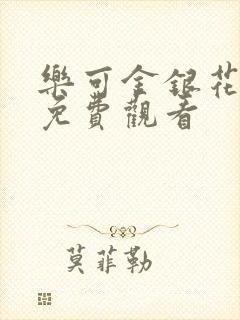 樂可金銀花
免費觀看
莫菲勒